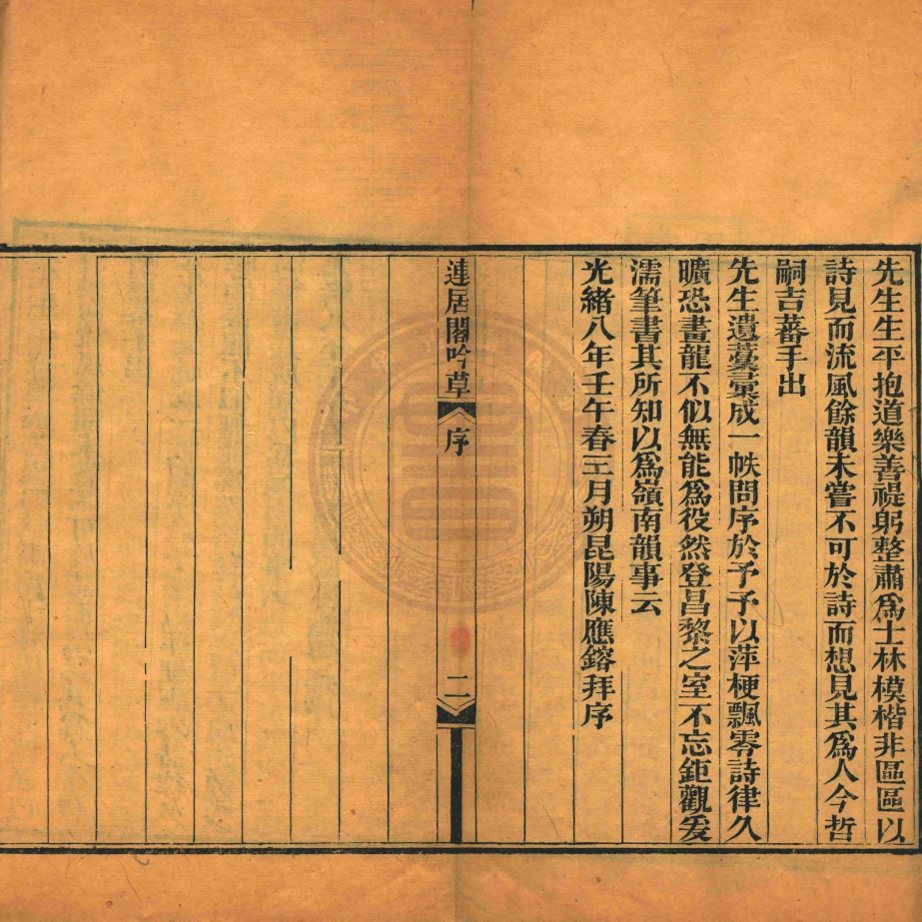 先生生平抱道樂善禔躬整肅爲士林模楷非區區以
詩見而流風餘韻未嘗不可於詩而想見其爲人今哲
嗣吉蕃手出
先生遺藁彚成一帙問序於予予以萍梗飄零詩律久
曠恐畫龍不似無能爲役然登昌黎之室不忘鉅觀爰
濡筆書其所知以爲嶺南韻事云
光緒八年壬午春三月朔昆陽陳應鎔拜序
連居閣吟草
序
二